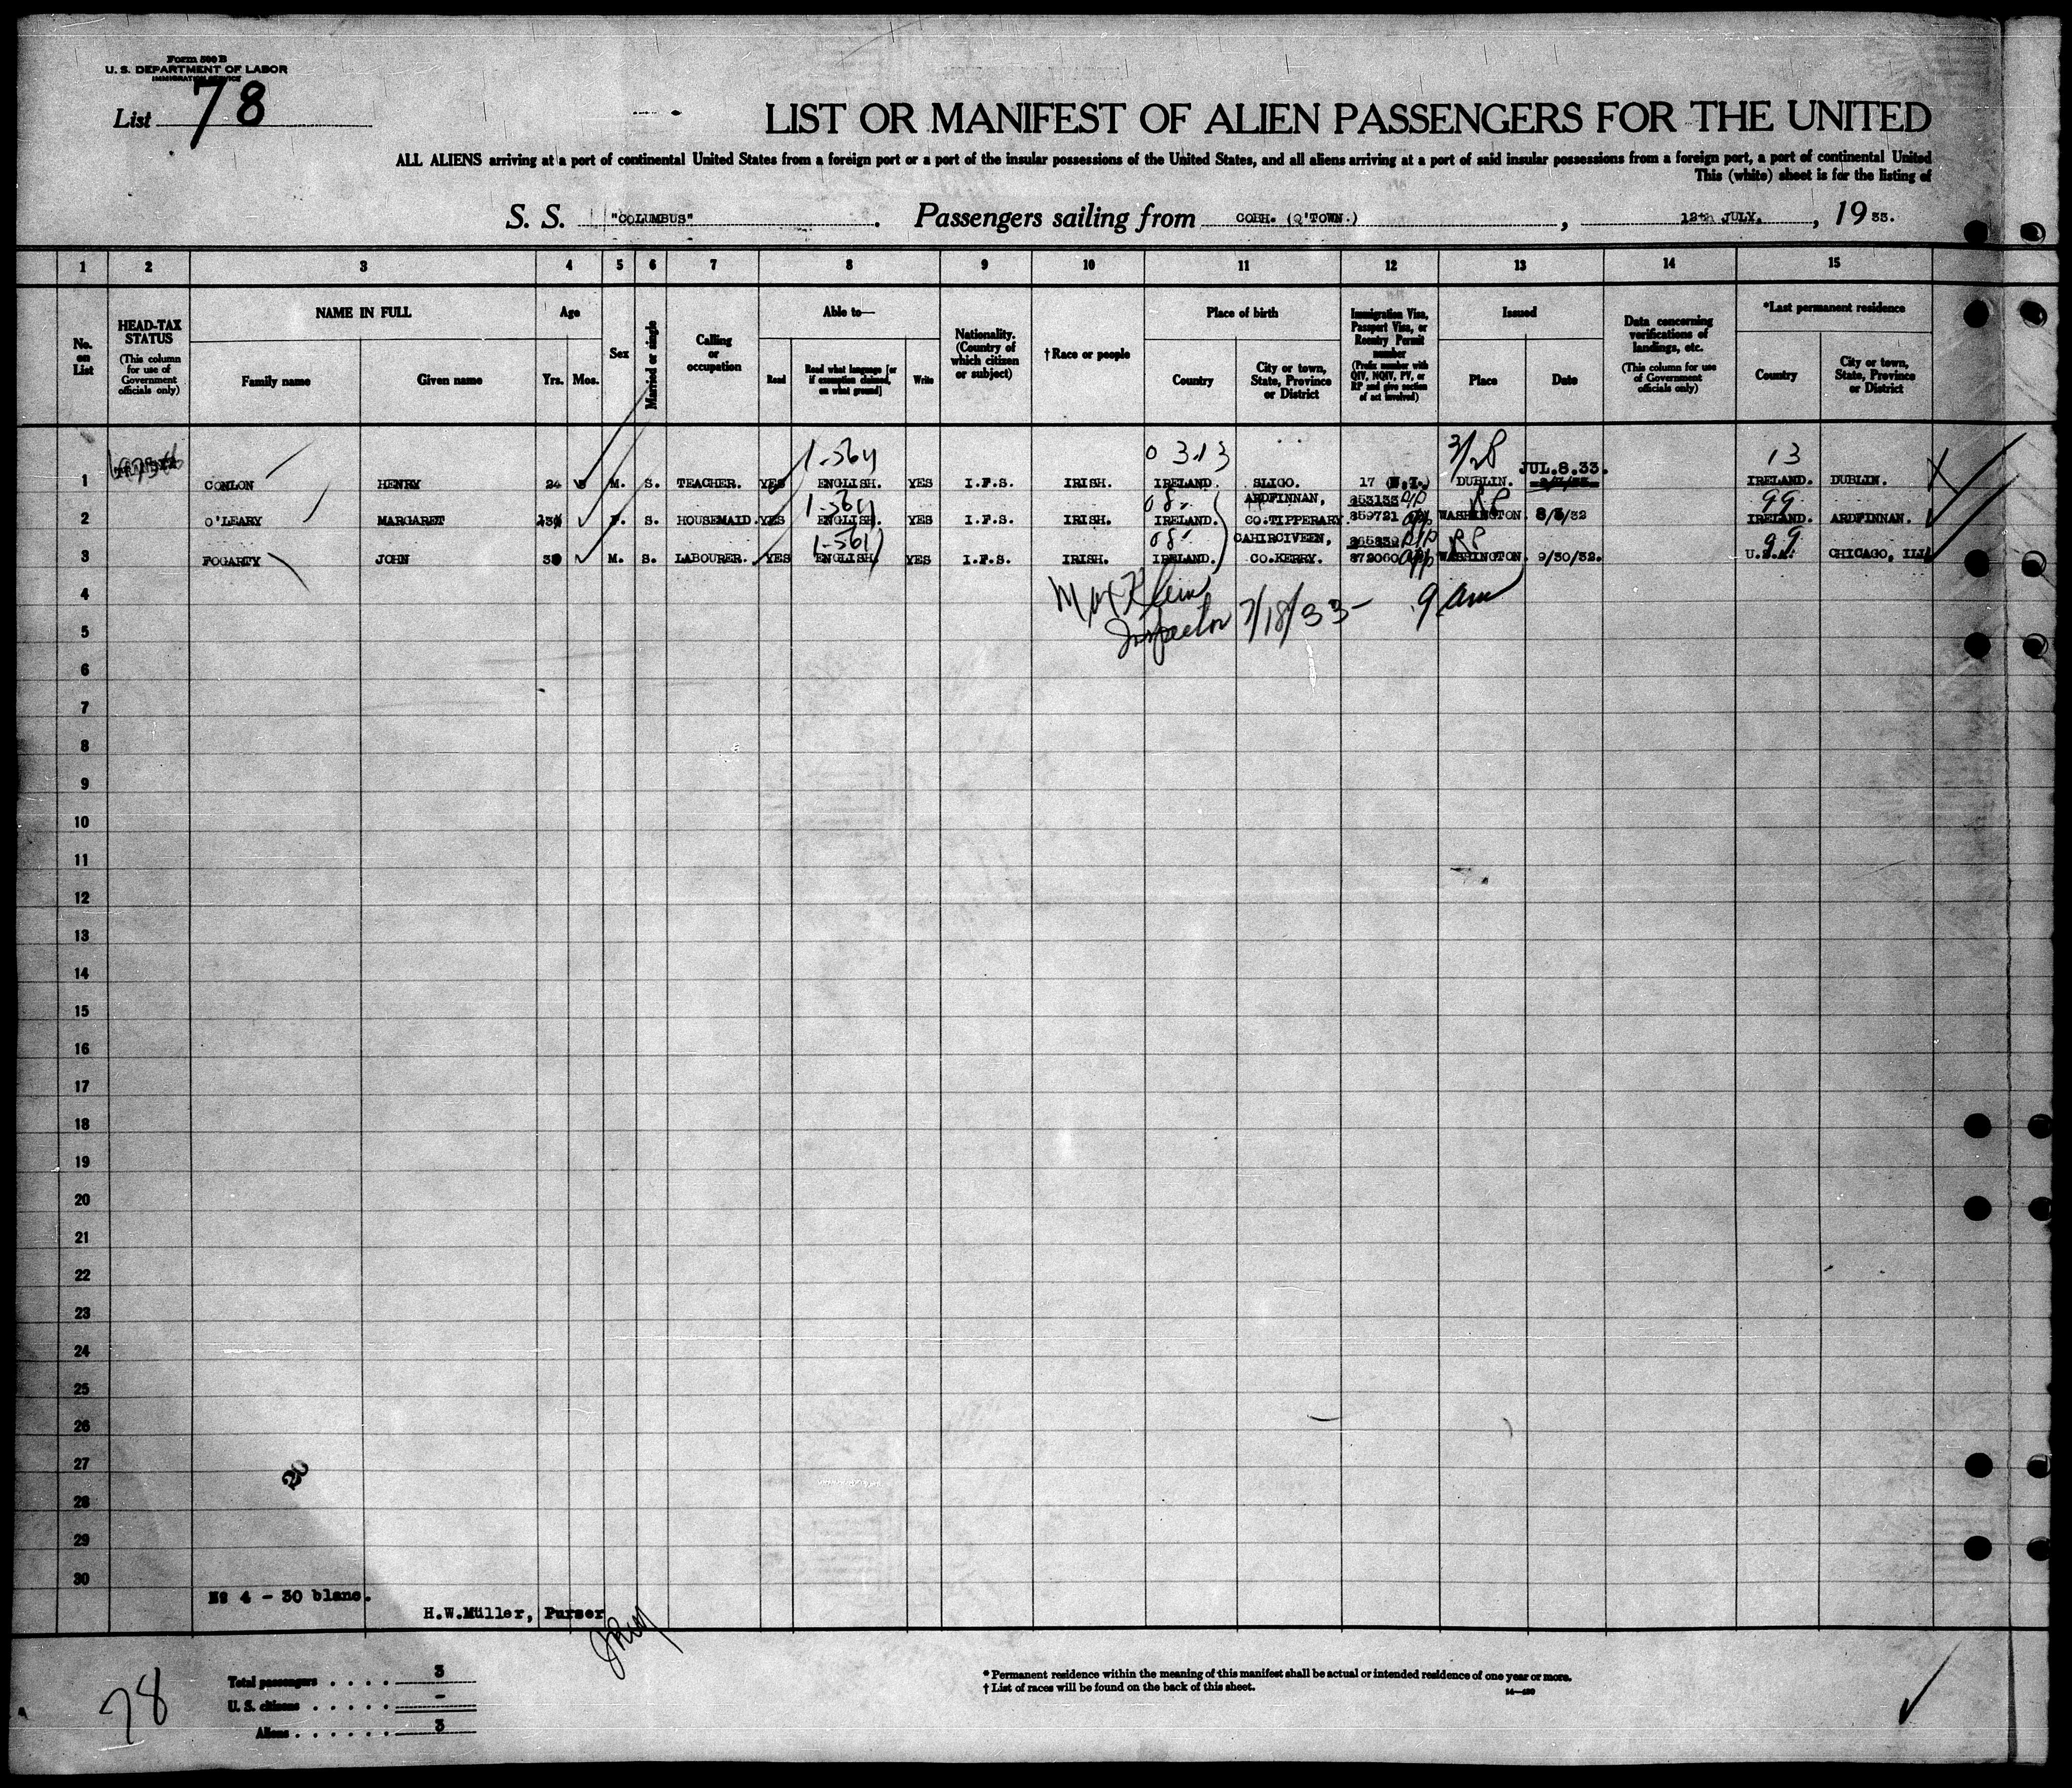 Form 500 B
U. S. DEPARTMENT OF LABOR
IMMIGRATION SERVICE
List 78
LIST OR MANIFEST OF ALIEN PASSENGERS FOR THE UNITED
ALL ALIENS arriving at a port of continental United States from a foreign port or a port of the insular possessions of the United States, and all aliens arriving at a port of said insular possessions from a foreign port, a port of continental United
This (white) sheet is for the listing of
S. S. "COLUMBUS" . Passengers sailing from COBH. (Q'TOWN.) , 12th JULY. , 19 33.
1 2 3 4 5 6 7 8 9 10 11 12 13 14 15
No. on List
HEAD-TAX STATUS
(This column for use of Government officials only)
NAME IN FULL
Family name
Given name
Age
Yrs. Mos.
Sex
Married or single
Calling or occupation
Able to—
Read
Read what language [or if exemption claimed, on what ground]
Write
Nationality. (Country of which citizen or subject)
† Race or people
Place of birth
Country
City or town, State, Province or District
Immigration Visa, Passport Visa, or Reentry Permit number
(Prefix number with QIV, NQIV, PV, or RP and give section of act involved)
Issued
Place
Date
Data concerning verifications of landings, etc.
(This column for use of Government officials only)
*Last permanent residence
Country
City or town, State, Province or District
1-564 0 3 13 3/28 JUL.8.33. 13
1 CONLON HENRY 24 M. S. TEACHER. YES ENGLISH. YES I.F.S. IRISH. IRELAND. SLIGO. 17 DUBLIN. IRELAND. DUBLIN.
1-564 08 ARDFINNAN, 353133 RP 99
2 O'LEARY MARGARET F. S. HOUSEMAID. YES ENGLISH. YES I.F.S. IRISH. IRELAND. CO.TIPPERARY. 859721 WASHINGTON 8/3/32 IRELAND. ARDFINNAN.
1-561 08 CAHIRCIVEEN, 365839 RP 99
3 FOGARTY JOHN M. S. LABOURER. YES ENGLISH. YES I.F.S. IRISH. IRELAND. CO.KERRY. 872060 WASHINGTON. 9/30/32. U.S.A. CHICAGO, ILL
4 Max Klein 9 am
5 Inspector 7/18/33
6
7
8
9
10
11
12
13
14
15
16
17
18
19
20
21
22
23
24
25
26
27
20
28
29
30
No 4 - 30 blanc.
H.W.Müller, Purser
78
Total passengers . . . . 3
U. S. citizens . . . . . -
Aliens . . . . . . 3
* Permanent residence within the meaning of this manifest shall be actual or intended residence of one year or more.
† List of races will be found on the back of this sheet.